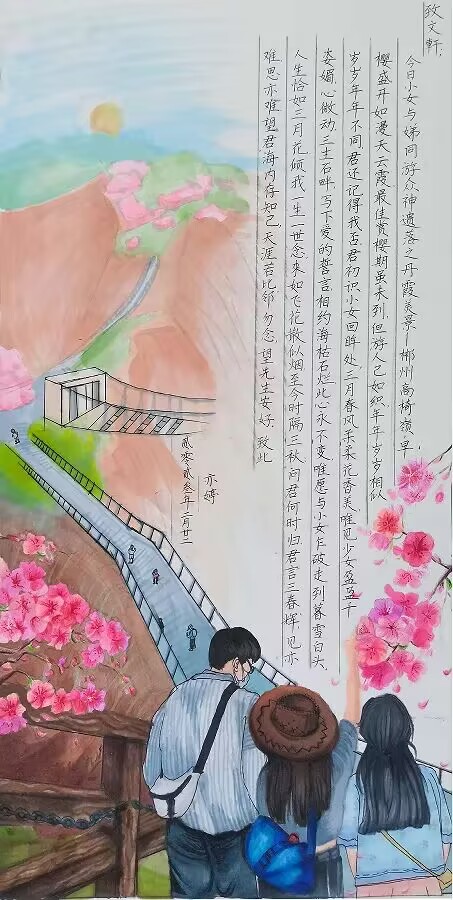 致文軒:
今日小女与娣同游众神遗落之丹霞美景—郴州高椅嶺,早
樱盛开如漫天云霞,最佳赏樱期虽未到,但游人已如织,年年岁岁相似
岁岁年年不同,君还记得我否,君初识小女回眸处,三月春风柔柔,花香美,唯见少女盈盈千
姿媚,心微动,三生石畔,写下爱的誓言,相约海枯石烂,此心永不变,唯愿与小女乍破走到暮雪白头
人生恰如三月花,倾我一生一世念,来如飞花散似烟,至今时隔三秋,问君何时归,君言三春辉,见亦
难思亦难,望君海内存知己,天涯若比邻,勿念,望先生安好,致此
亦婷
贰零贰叁年二月廿二